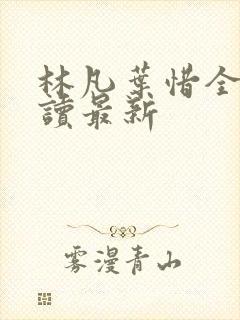 林凡葉惜全
讀最新
雾漫青山